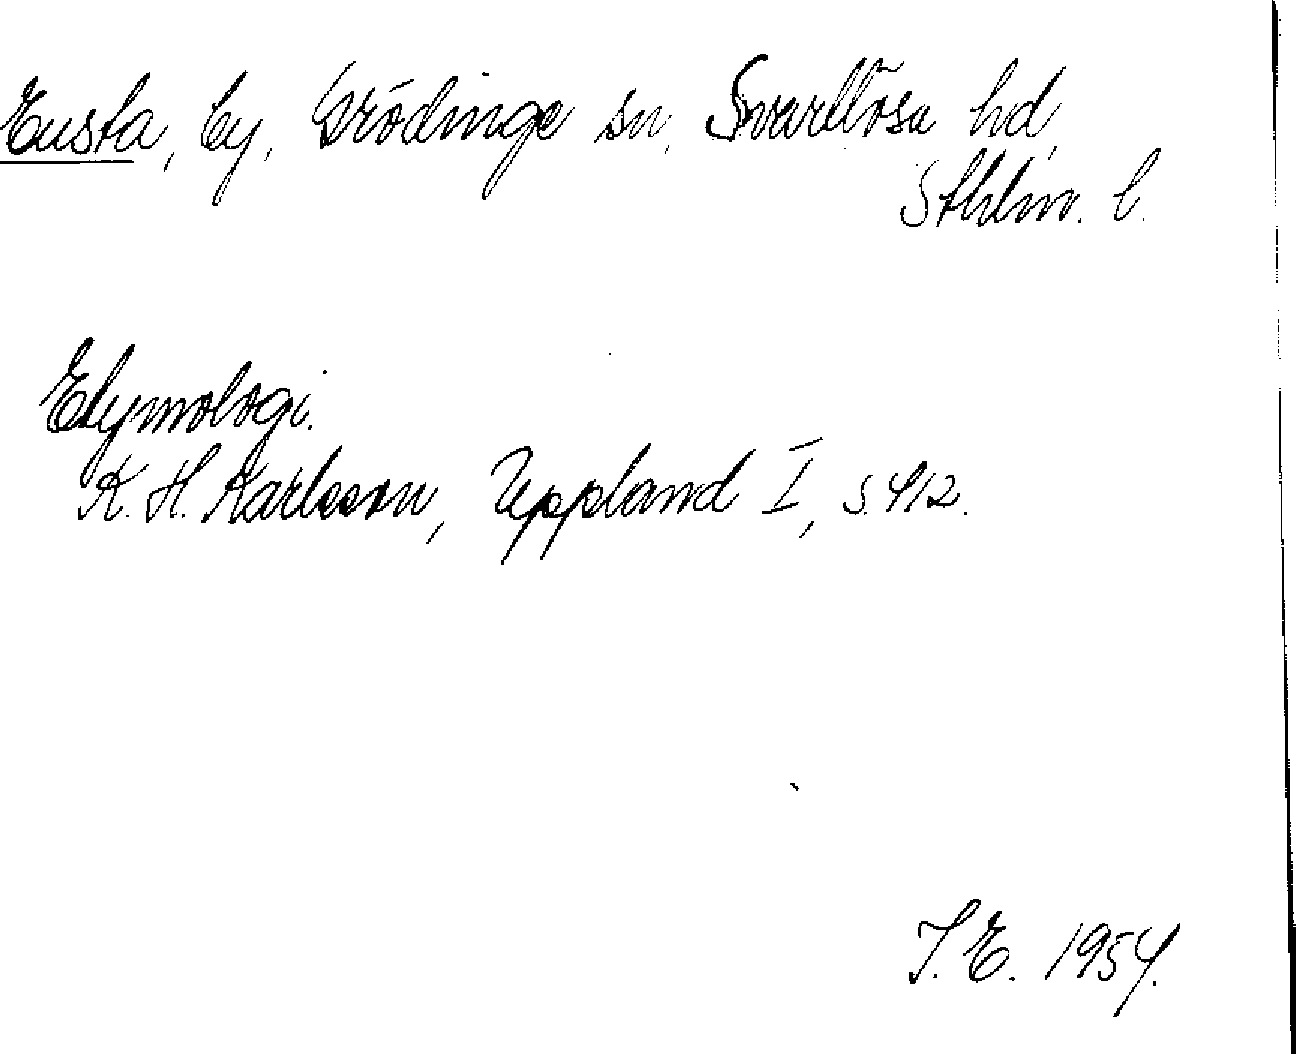 Eusta, by, Grödinge sn, Svartlösa hd,
Sthlm. l.
Etymologi.
K. H. Karlsson, Uppland I, s. 412.
I. E. 1954.